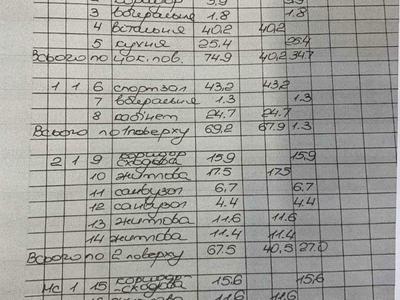 3 вбиральня 1.8 1.8
4 вітальня 40,2 40,2
5 кухня 25.4 25.4
Всього по цок. пов. 74,9 40,2 34.7
1 1 6 спортзал 43,2 43,2
7 вбиральня 1.3 1.3
8 кабінет 24.7 24.7
Всього по 1 поверху 69,2 67.9 1.3
2 1 9 коридор-сходова 15.9 15.9
10 житлова 17.5 17.5
11 санвузол 6.7 6.7
12 санвузол 4.4 4.4
13 житлова 11.6 11.6
14 житлова 11.4 11.4
Всього по 2 поверху 67.5 40,5 27.0
мс 1 15 коридор-сходова 15.6 15.6
11.6 11.6